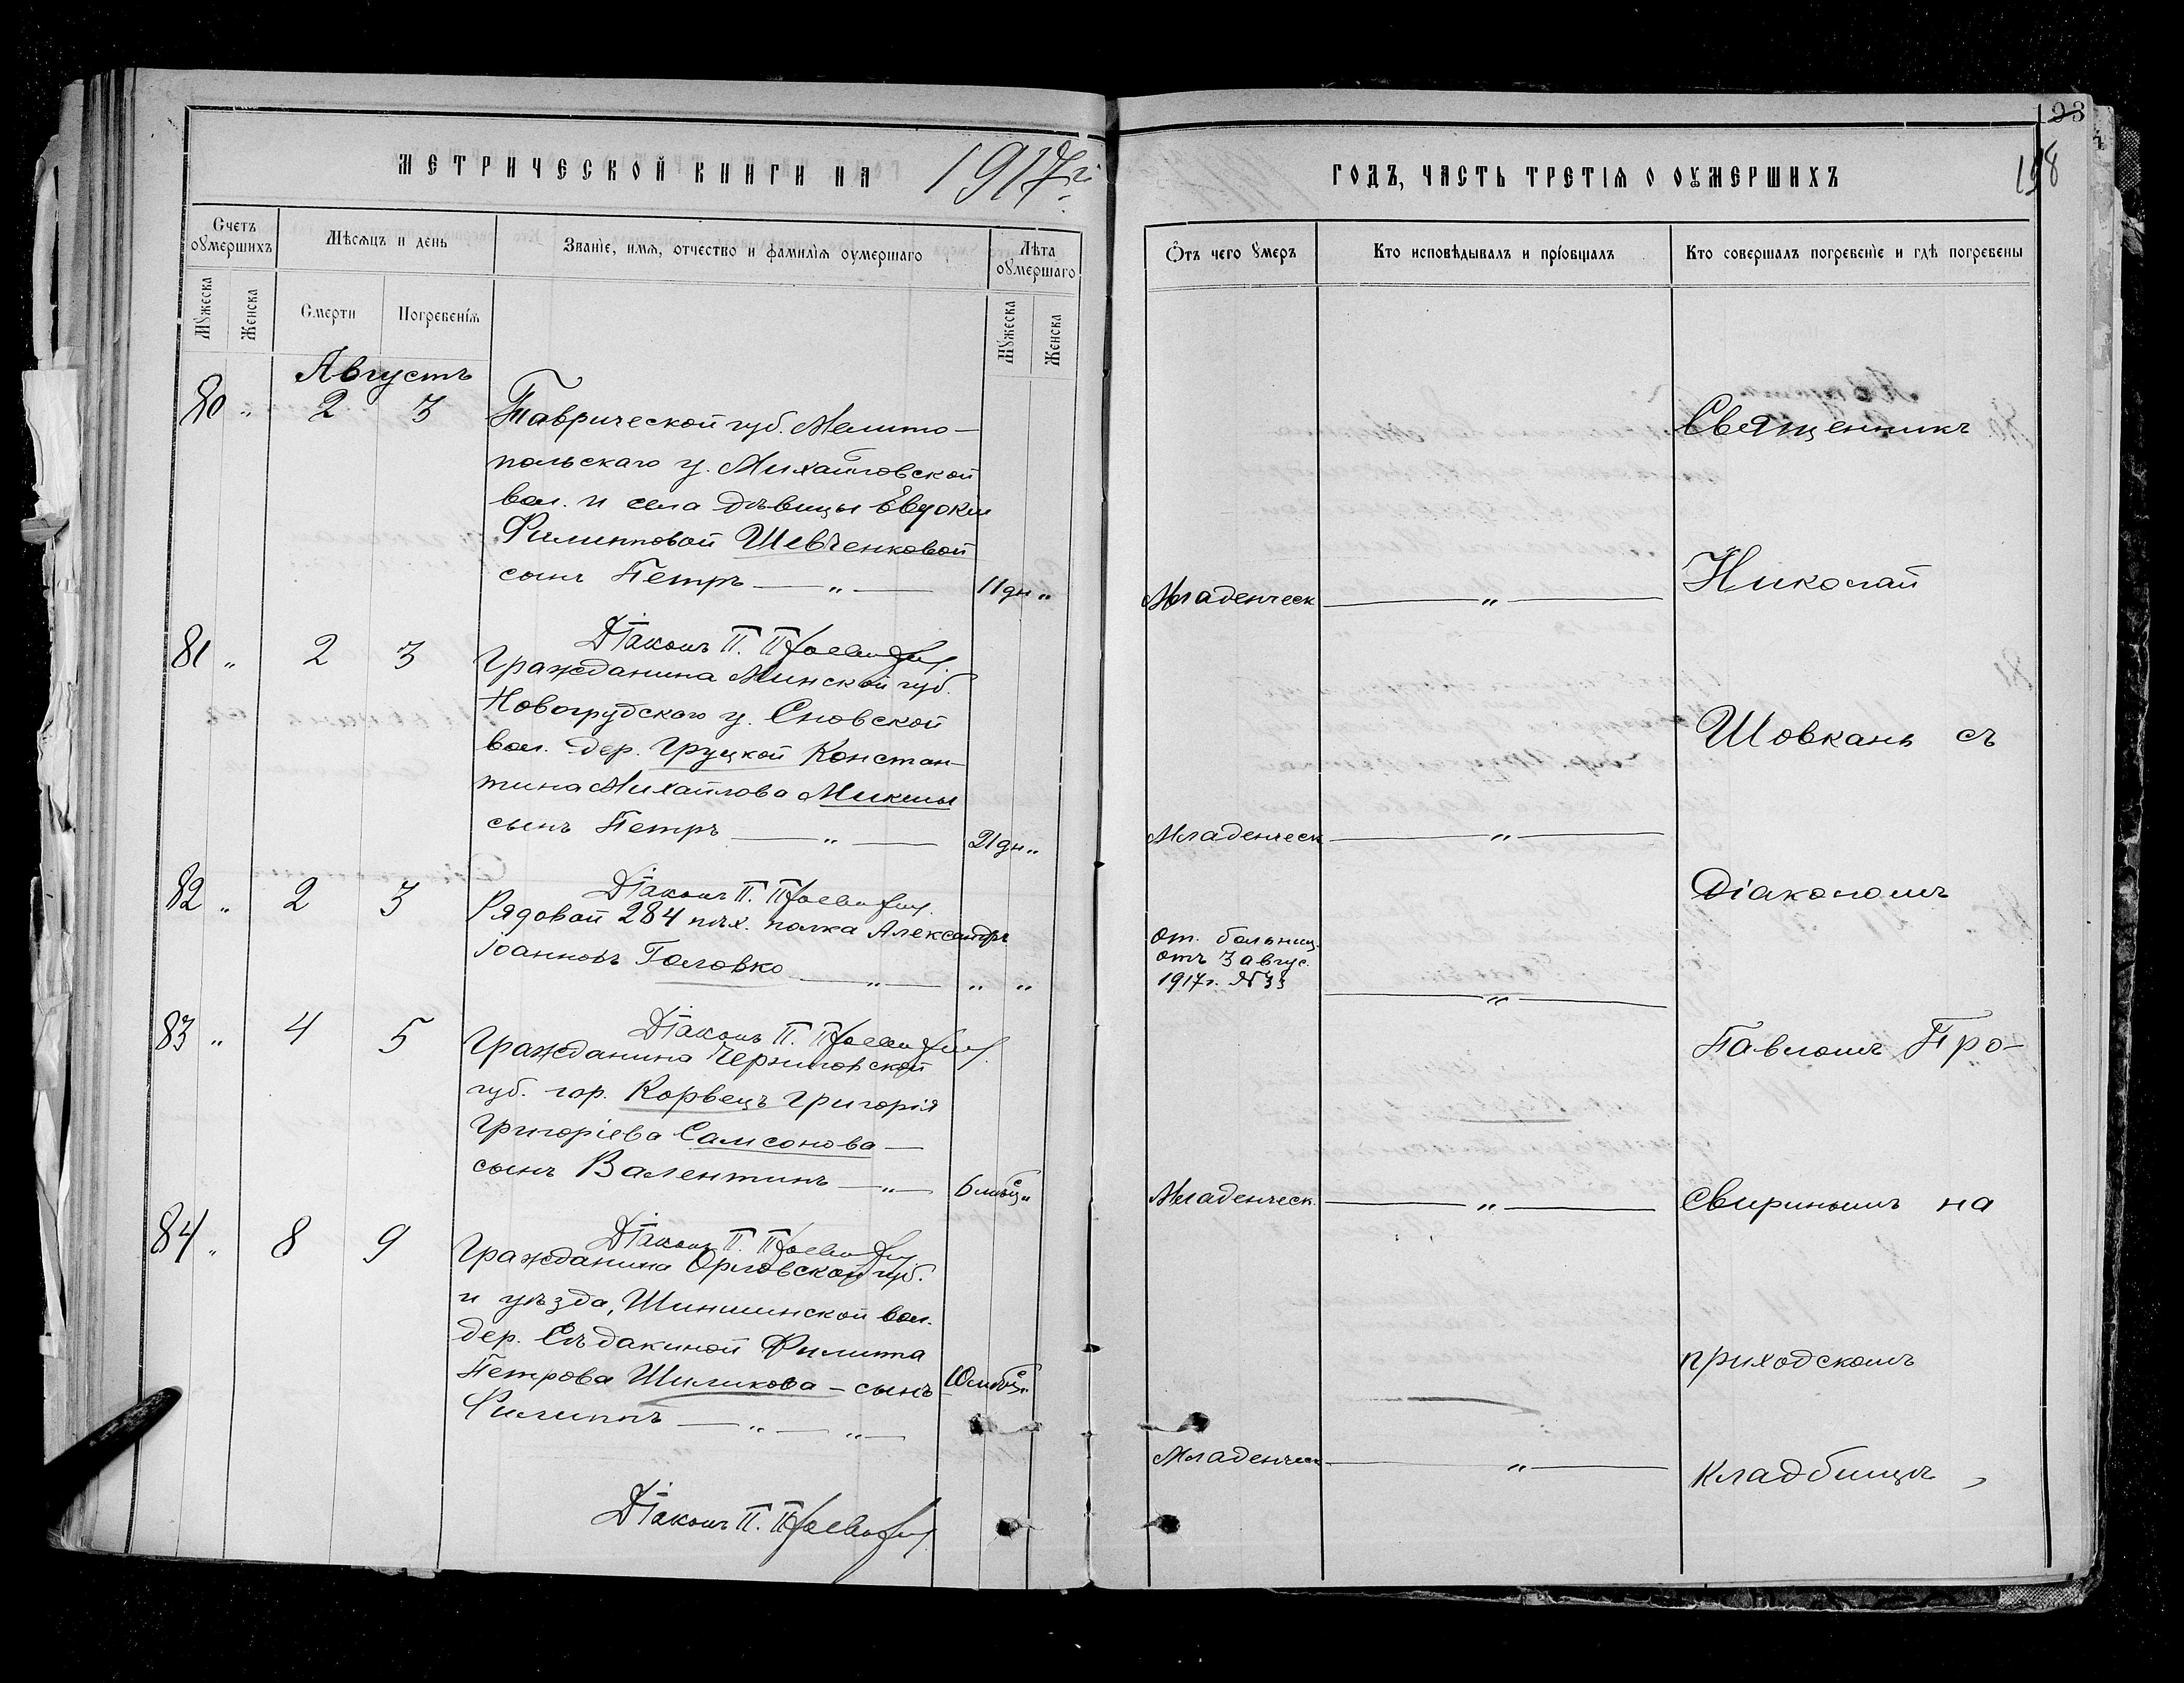 МЕТРИЧЕСКОЙ КНИГИ НА 1917 г.
Счетъ оумершихъ
Мѣсяцъ и день
Званіе, имя, отчество и фамилія оумершаго
Лѣта оумершаго
Мужеска
Женска
Смерти
Погребенія
Мужеска
Женска
Августъ
80 " 2 3 Таврической губ. Мелито-
польскаго у. Михайловской
вол. и села дѣвицы Евдокіи
Филипповой Шевченковой
сынъ Петръ — " — 11 дн "
Діаконъ П.
81 " 2 3 Гражданина Минской губ.
Новогрудскаго у. Сновской
вол. дер. Грукой Констан-
тина Михайлова Микши
сынъ Петръ — " — 21 дн "
Діаконъ П.
82 " 2 3 Рядовой 284 пѣх. полка Александръ
Іоанновъ Головко — " — " "
Діаконъ П.
83 " 4 5 Гражданина Черниговской
губ. гор. Григорія
Григоріева Самсонова —
сынъ Валентинъ — " — 6 мѣс "
Діаконъ П.
84 " 8 9 Гражданина Орловской губ.
и уѣзда, вол.
дер. Филиппа
Петрова Шиликова — сынъ 10 мѣс "
Филиппъ — " — " —
Діаконъ П.
198
158
ГОДЪ, ЧАСТЬ ТРЕТІЯ О ОУМЕРШИХЪ
Отъ чего умеръ
Кто исповѣдывалъ и пріобщалъ
Кто совершалъ погребеніе и гдѣ погребены
Священникъ
Младенческ — " — Николай
Шовкань съ
Младенческ — " —
Діакономъ
от. больниц.
отъ 3 авгус.
1917 г. № 33 — " —
Павломъ Про-
Младенческ. — " — свиринымъ на
приходскомъ
Младенческ — " — кладбищѣ,